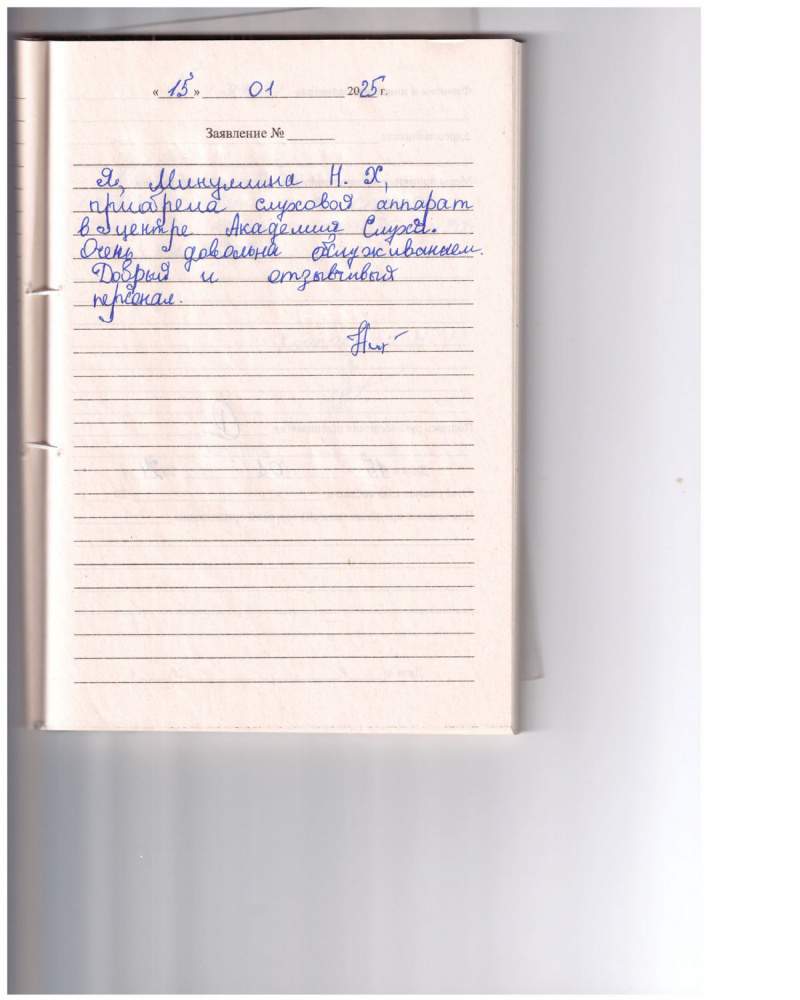 «15» 01 2025 г.
Заявление №
Я, Минуллина Н. Х,
приабрела слуховой аппарат
в центре Академия Слуха.
Очень довольна обслуживанием.
Добрый и отзывчивый
персонал.